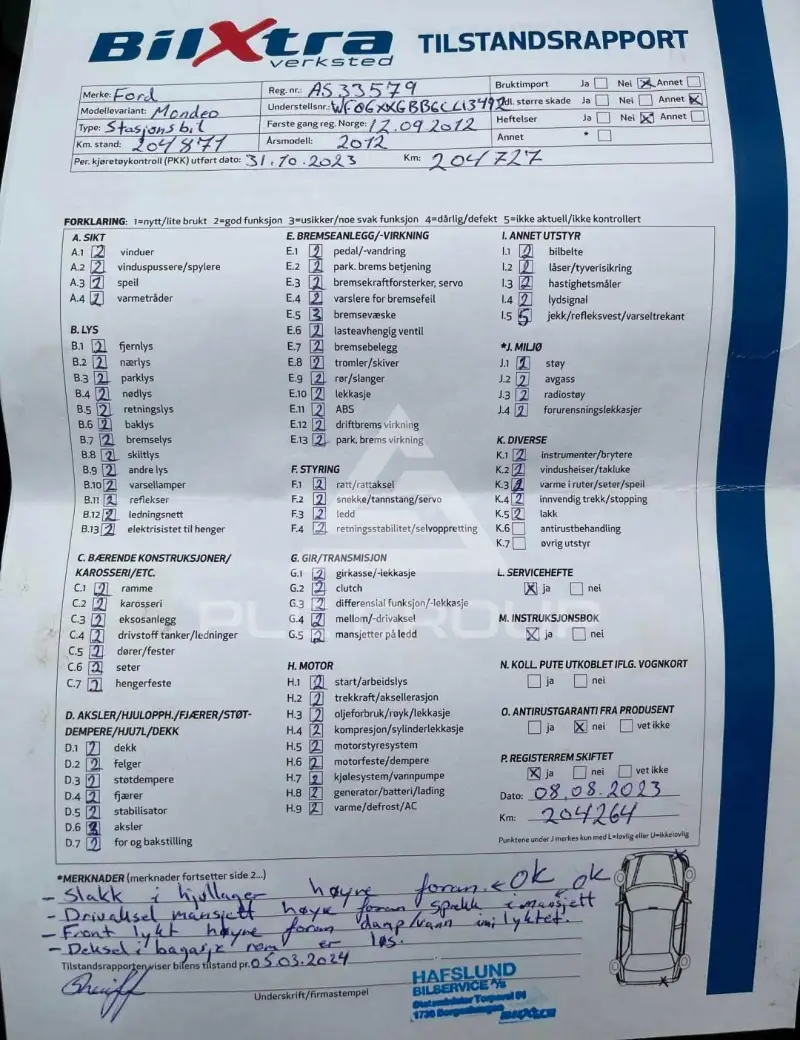 BilXtra verksted TILSTANDSRAPPORT
Merke: Ford Reg. nr.: AS33579 Bruktimport Ja Nei X Annet
Modellevariant: Mondeo Understellsnr.: WF06XXGBB6CL13492 dl. større skade Ja Nei Annet X
Type: Stasjonsbil Første gang reg. Norge: 12.09 2012 Heftelser Ja Nei X Annet
Km. stand: 204871 Årsmodell: 2012 Annet *
Per. kjøretøykontroll (PKK) utført dato: 31.10.2023 Km: 204727
FORKLARING: 1=nytt/lite brukt 2=god funksjon 3=usikker/noe svak funksjon 4=dårlig/defekt 5=ikke aktuell/ikke kontrollert
A. SIKT
A.1 2 vinduer
A.2 2 vinduspussere/spylere
A.3 2 speil
A.4 2 varmetråder
B. LYS
B.1 2 fjernlys
B.2 2 nærlys
B.3 2 parklys
B.4 2 nødlys
B.5 2 retningslys
B.6 2 baklys
B.7 2 bremselys
B.8 2 skiltlys
B.9 2 andre lys
B.10 2 varsellamper
B.11 2 reflekser
B.12 2 ledningsnett
B.13 2 elektrisistet til henger
C. BÆRENDE KONSTRUKSJONER/
KAROSSERI/ETC.
C.1 2 ramme
C.2 2 karosseri
C.3 2 eksosanlegg
C.4 2 drivstoff tanker/ledninger
C.5 2 dører/fester
C.6 2 seter
C.7 2 hengerfeste
D. AKSLER/HJULOPPH./FJÆRER/STØT-
DEMPERE/HJU7L/DEKK
D.1 2 dekk
D.2 2 felger
D.3 2 støtdempere
D.4 2 fjærer
D.5 2 stabilisator
D.6 aksler
D.7 2 for og bakstilling
E. BREMSEANLEGG/-VIRKNING
E.1 2 pedal/-vandring
E.2 2 park. brems betjening
E.3 2 bremsekraftforsterker, servo
E.4 2 varslere for bremsefeil
E.5 3 bremsevæske
E.6 2 lasteavhengig ventil
E.7 2 bremsebelegg
E.8 2 tromler/skiver
E.9 2 rør/slanger
E.10 2 lekkasje
E.11 2 ABS
E.12 2 driftbrems virkning
E.13 2 park. brems virkning
F. STYRING
F.1 2 ratt/rattaksel
F.2 2 snekke/tannstang/servo
F.3 2 ledd
F.4 2 retningsstabilitet/selvoppretting
G. GIR/TRANSMISJON
G.1 2 girkasse/-lekkasje
G.2 2 clutch
G.3 2 differensial funksjon/-lekkasje
G.4 2 mellom/-drivaksel
G.5 2 mansjetter på ledd
H. MOTOR
H.1 2 start/arbeidslys
H.2 2 trekkraft/aksellerasjon
H.3 2 oljeforbruk/røyk/lekkasje
H.4 2 kompresjon/sylinderlekkasje
H.5 2 motorstyresystem
H.6 2 motorfeste/dempere
H.7 2 kjølesystem/vannpumpe
H.8 2 generator/batteri/lading
H.9 2 varme/defrost/AC
I. ANNET UTSTYR
I.1 2 bilbelte
I.2 2 låser/tyverisikring
I.3 2 hastighetsmåler
I.4 2 lydsignal
I.5 5 jekk/refleksvest/varseltrekant
*J. MILJØ
J.1 2 støy
J.2 2 avgass
J.3 2 radiostøy
J.4 2 forurensningslekkasjer
K. DIVERSE
K.1 2 instrumenter/brytere
K.2 2 vindusheiser/takluke
K.3 2 varme i ruter/seter/speil
K.4 2 innvendig trekk/stopping
K.5 2 lakk
K.6 antirustbehandling
K.7 øvrig utstyr
L. SERVICEHEFTE
X ja nei
M. INSTRUKSJONSBOK
X ja nei
N. KOLL. PUTE UTKOBLET IFLG. VOGNKORT
ja nei
O. ANTIRUSTGARANTI FRA PRODUSENT
ja X nei vet ikke
P. REGISTERREM SKIFTET
X ja nei vet ikke
Dato: 08.08.2023
Km: 204264
Punktene under J merkes kun med L=lovlig eller U=ikke lovlig
PLCGROUP
*MERKNADER (merknader fortsetter side 2...)
- Slakk i hjullager høyre foran. ← OK OK
- Drivaksel mansjett høyre foran sprekk i mansjett
- Front lykt høyre foran damp/vann inni lyktet.
- Deksel i bagasje rom er løs.
Tilstandsrapporten viser bilens tilstand pr. 05.03.2024
Underskrift/firmastempel
HAFSLUND
BILSERVICE A/S
Statsminister Torpsvei 54
1738 Borgenhaugen